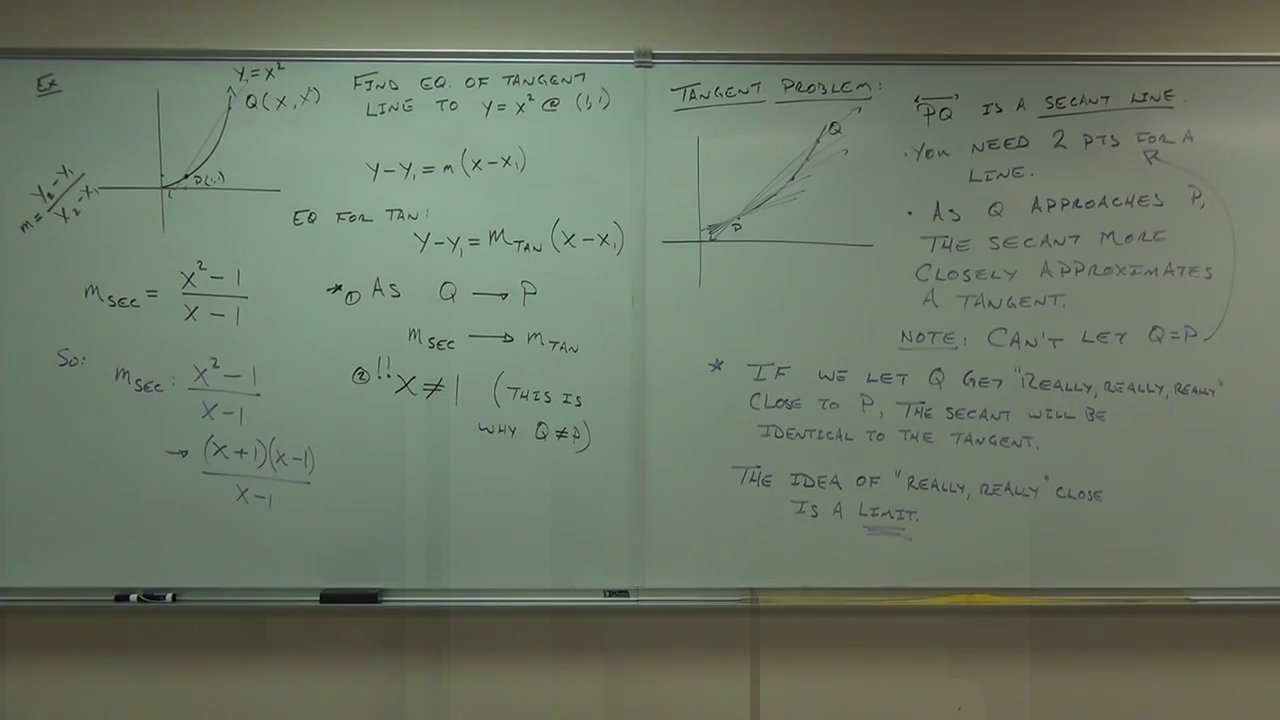 Ex
Y=X²
Q(X,X²)
P(1,1)
m=Y₂-Y₁/X₂-X₁
m_SEC = X²-1/X-1
So:
m_SEC: X²-1/X-1
→ (X+1)(X-1)/X-1
FIND EQ. OF TANGENT
LINE TO Y=X² @ (1,1)
Y-Y₁=m(X-X₁)
EQ FOR TAN:
Y-Y₁=m_TAN(X-X₁)
* ① AS Q → P
m_SEC → m_TAN
② !! X≠1 (THIS IS
WHY Q≠P)
TANGENT PROBLEM:
Q
P
PQ IS A SECANT LINE.
· YOU NEED 2 PTS FOR A
LINE.
· AS Q APPROACHES P,
THE SECANT MORE
CLOSELY APPROXIMATES
A TANGENT.
NOTE: CAN'T LET Q=P
* IF WE LET Q GET "REALLY, REALLY, REALLY"
CLOSE TO P, THE SECANT WILL BE
IDENTICAL TO THE TANGENT.
THE IDEA OF "REALLY, REALLY" CLOSE
IS A LIMIT.